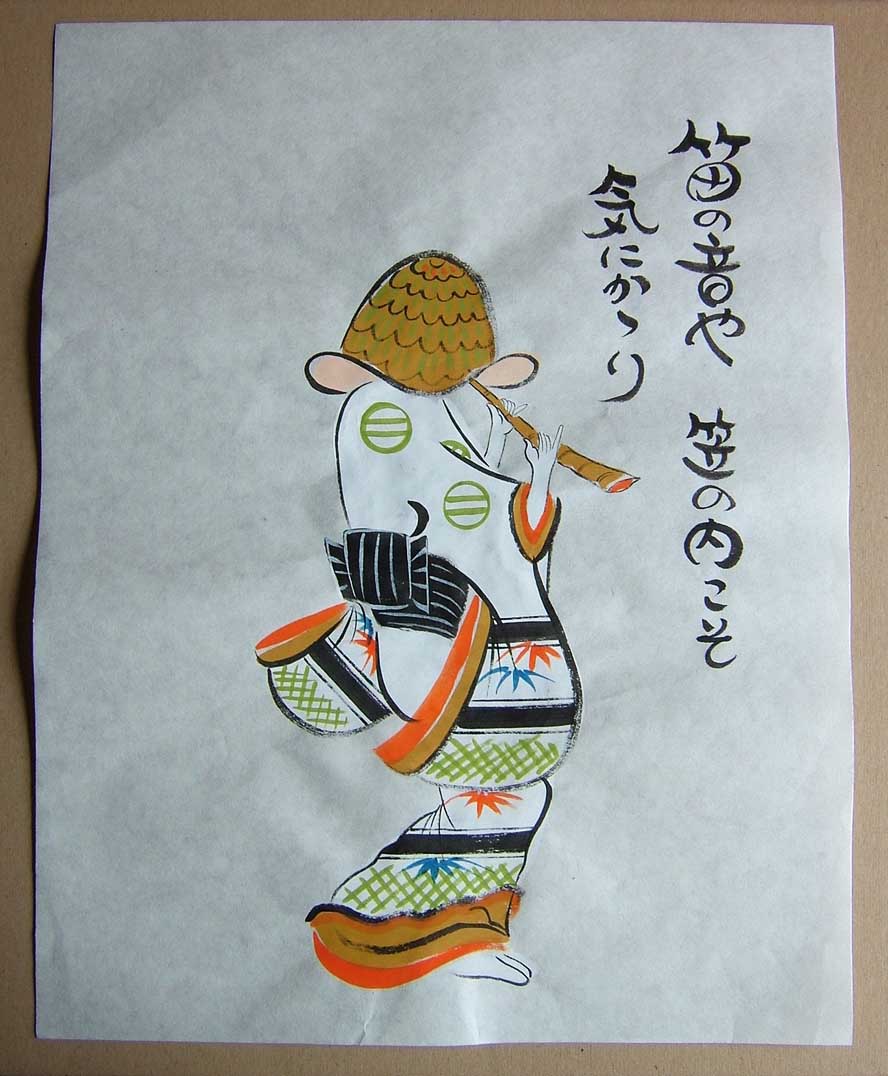 笛の音や 笠の内こそ
気にかゝり